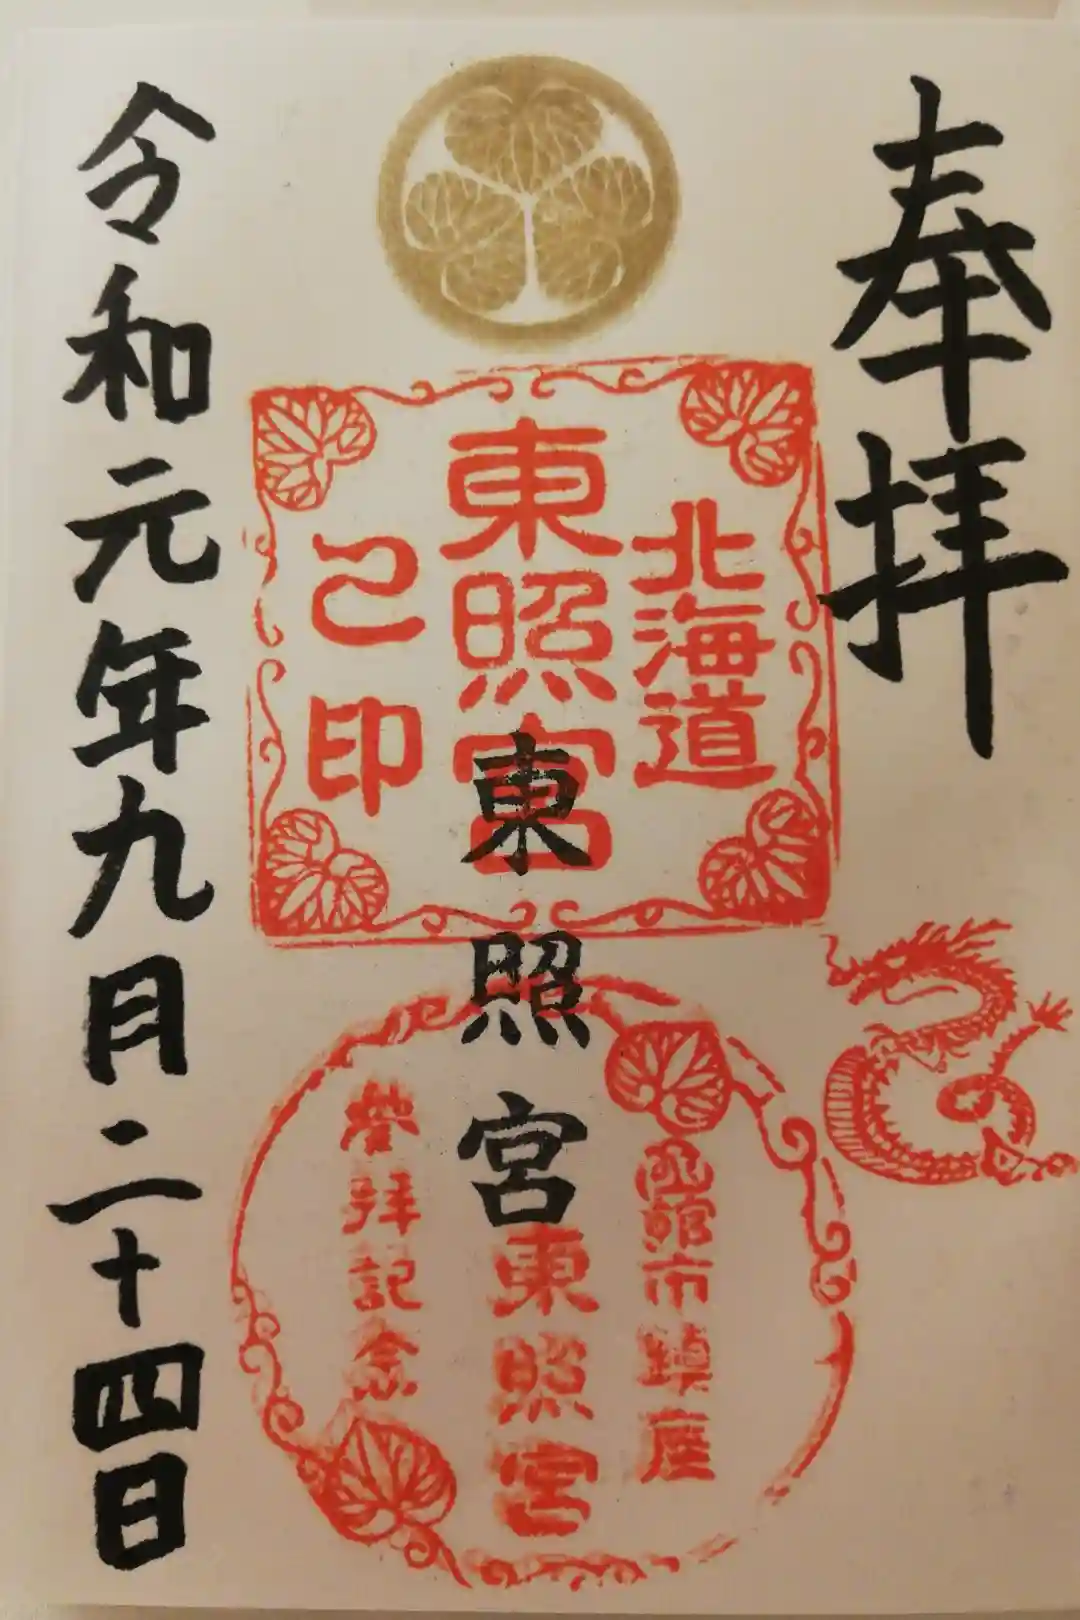 奉拝
北海道
東照宮
之印
東照宮
函館市鎮座
東照宮
參拝記念
令和元年九月二十四日